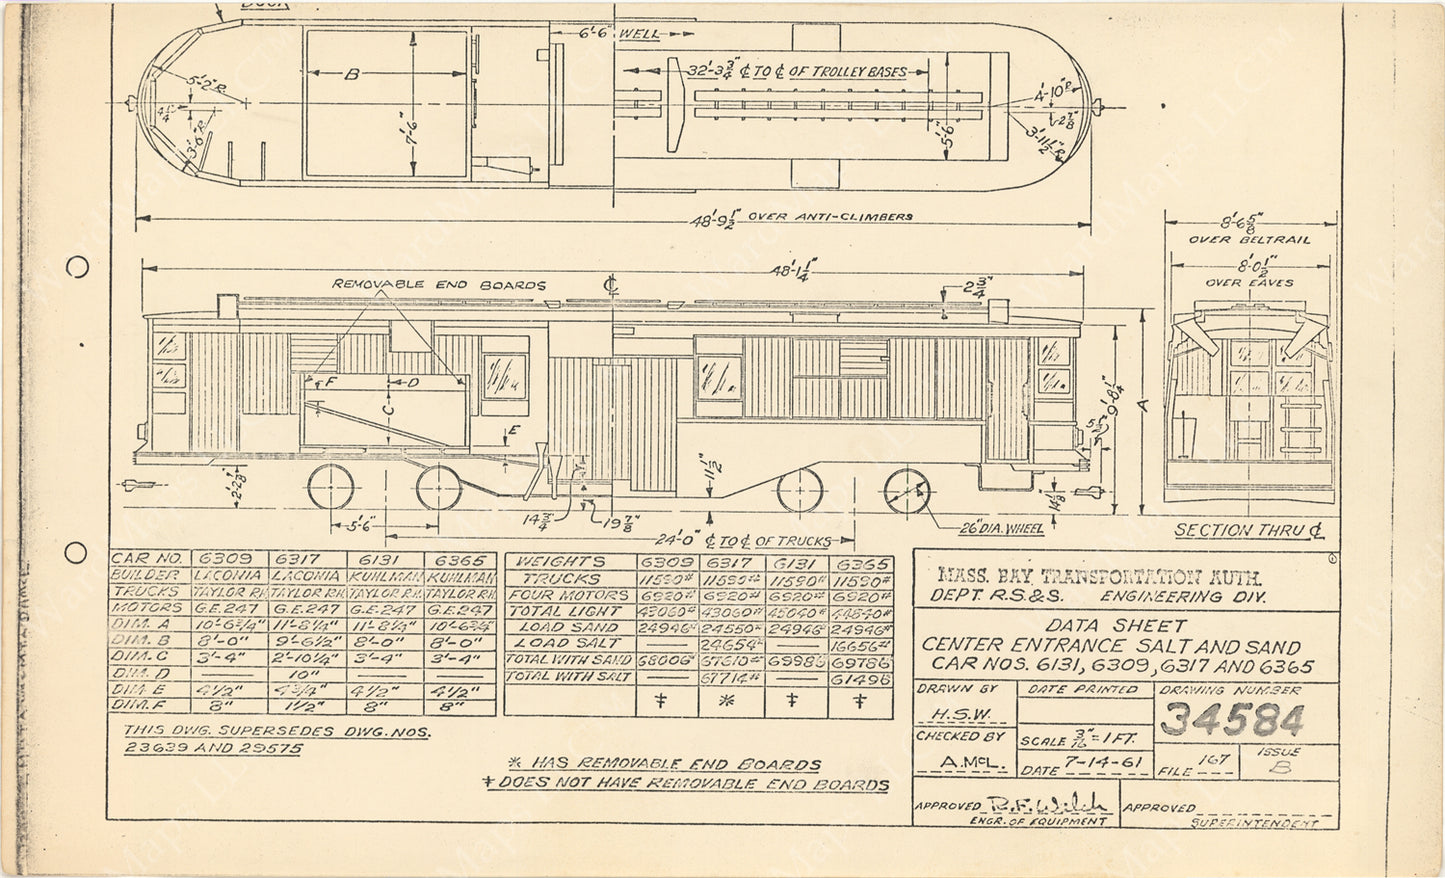 DOOR
6'-6" WELL
32'-3¾" ℄ TO ℄ OF TROLLEY BASES
5'-2"R.
B
4'-10"R.
4¼"
2⅞"
3'-6"R.
7'-6"
5'-6"
3'-11½"R.
48'-9½" OVER ANTI-CLIMBERS
8'-6⅝"
OVER BELTRAIL
48'-1¼"
8'-0½"
OVER EAVES
REMOVABLE END BOARDS
℄
2¾"
F
D
C
A
9'-8¼"
E
11½"
14¾"
19⅞"
5'-6"
26" DIA. WHEEL
SECTION THRU ℄
24'-0" ℄ TO ℄ OF TRUCKS
CAR NO. 6309 6317 6131 6365
BUILDER LACONIA LACONIA KUHLMAN KUHLMAN
TRUCKS TAYLOR R.H. TAYLOR R.H. TAYLOR R.H. TAYLOR R.H.
MOTORS G.E.247 G.E.247 G.E.247 G.E.247
DIM. A 10'-6¾" 11'-8¼" 11'-8¼" 10'-6¾"
DIM. B 8'-0" 9'-6½" 8'-0" 8'-0"
DIM. C 3'-4" 2'-10¼" 3'-4" 3'-4"
DIM. D — 10" — —
DIM. E 4½" 4¾" 4½" 4½"
DIM. F 8" 1½" 8" 8"
WEIGHTS 6309 6317 6131 6365
TRUCKS 11590# 11590# 11590# 11590#
FOUR MOTORS 6920# 6920# 6920# 6920#
TOTAL LIGHT 43060# 43060# 45040# 44840#
LOAD SAND 24946# 24550# 24946# 24946#
LOAD SALT — 24654# — 16656#
TOTAL WITH SAND 68006# 67610# 69986 69786
TOTAL WITH SALT — 67714# — 61496
‡ * ‡ ‡
THIS DWG. SUPERSEDES DWG. NOS.
23639 AND 29575
* HAS REMOVABLE END BOARDS
‡ DOES NOT HAVE REMOVABLE END BOARDS
MASS. BAY TRANSPORTATION AUTH.
DEPT. R.S.& S. ENGINEERING DIV.
DATA SHEET
CENTER ENTRANCE SALT AND SAND
CAR NOS. 6131, 6309, 6317 AND 6365
DRAWN BY
H.S.W.
CHECKED BY
A.McL.
DATE PRINTED
SCALE 3/16" = 1 FT.
DATE 7-14-61
DRAWING NUMBER
34584
FILE 167
ISSUE
B
APPROVED R.F. Welch
ENGR. OF EQUIPMENT
APPROVED
SUPERINTENDENT